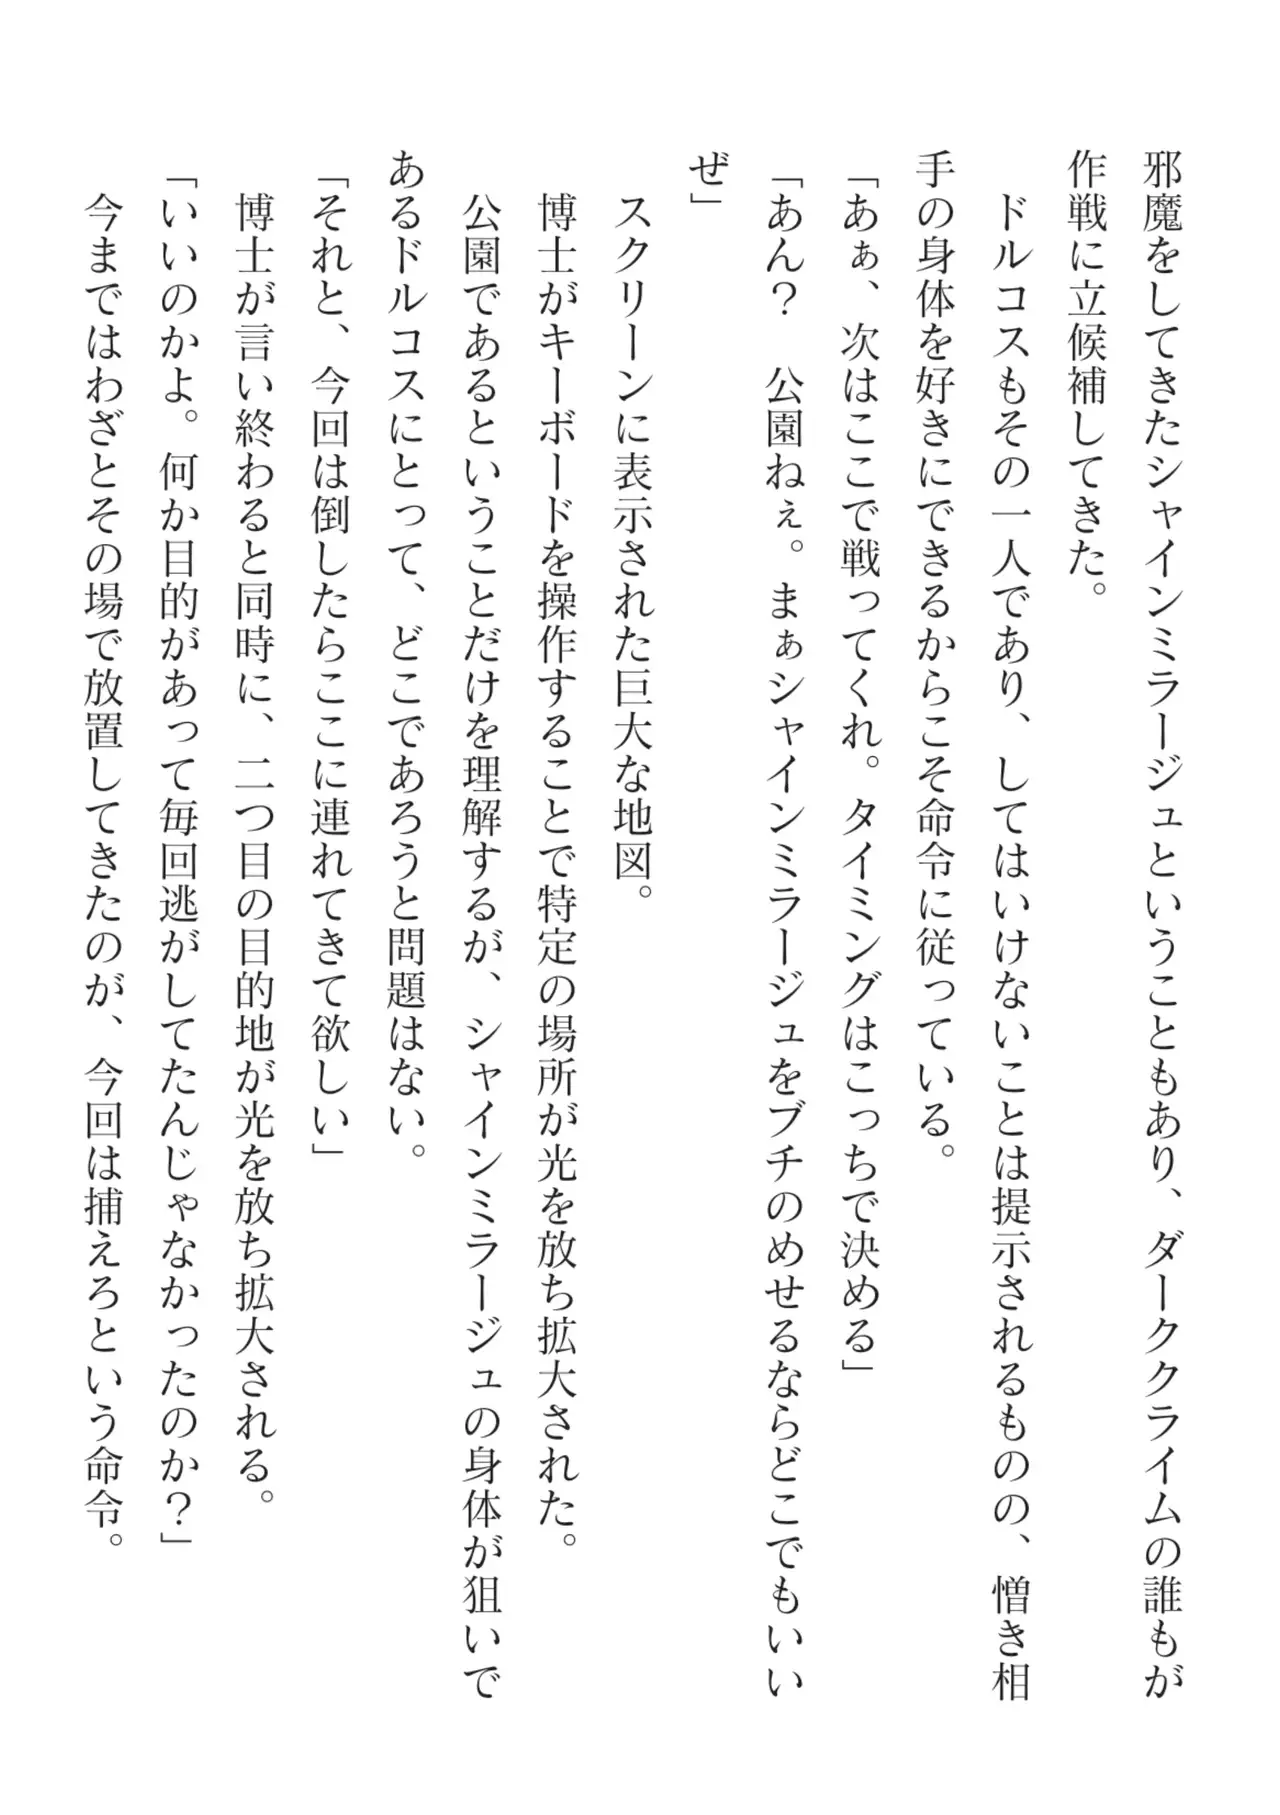 邪魔をしてきたシャインミラージュということもあり、ダーククライムの誰もが
作戦に立候補してきた。
　ドルコスもその一人であり、してはいけないことは提示されるものの、憎き相
手の身体を好きにできるからこそ命令に従っている。
「あぁ、次はここで戦ってくれ。タイミングはこっちで決める」
「あん？　公園ねぇ。まぁシャインミラージュをブチのめせるならどこでもいい
ぜ」
　スクリーンに表示された巨大な地図。
　博士がキーボードを操作することで特定の場所が光を放ち拡大された。
　公園であるということだけを理解するが、シャインミラージュの身体が狙いで
あるドルコスにとって、どこであろうと問題はない。
「それと、今回は倒したらここに連れてきて欲しい」
　博士が言い終わると同時に、二つ目の目的地が光を放ち拡大される。
「いいのかよ。何か目的があって毎回逃がしてたんじゃなかったのか？」
　今まではわざとその場で放置してきたのが、今回は捕えろという命令。